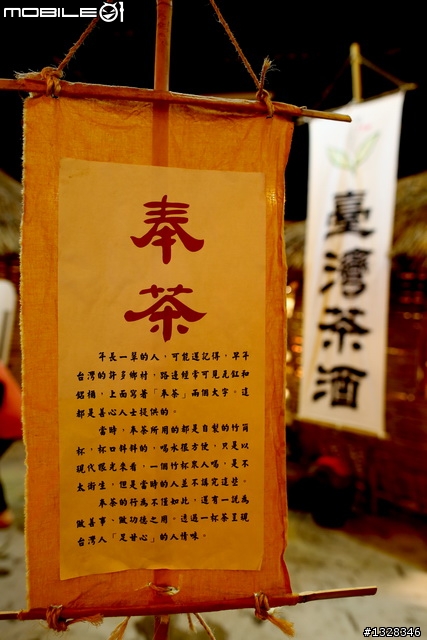 MOBILE01
奉
茶
年長一輩的人，可能還記得，早年
台灣的許多鄉村，路邊經常可見瓦缸和
鋁桶，上面寫著「奉茶」兩個大字。這
都是善心人士提供的。
當時，奉茶所用的都是自製的竹筒
杯，杯口斜斜的。喝水很方便，只是以
現代眼光來看，一個竹杯眾人喝，是不
太衛生，但是當時的人並不講究這些。
奉茶的行為不僅如此，還有一說為
做善事、做功德之用。透過一杯茶呈現
台灣人「足甘心」的人情味。
臺
灣
茶
酒
#1328346